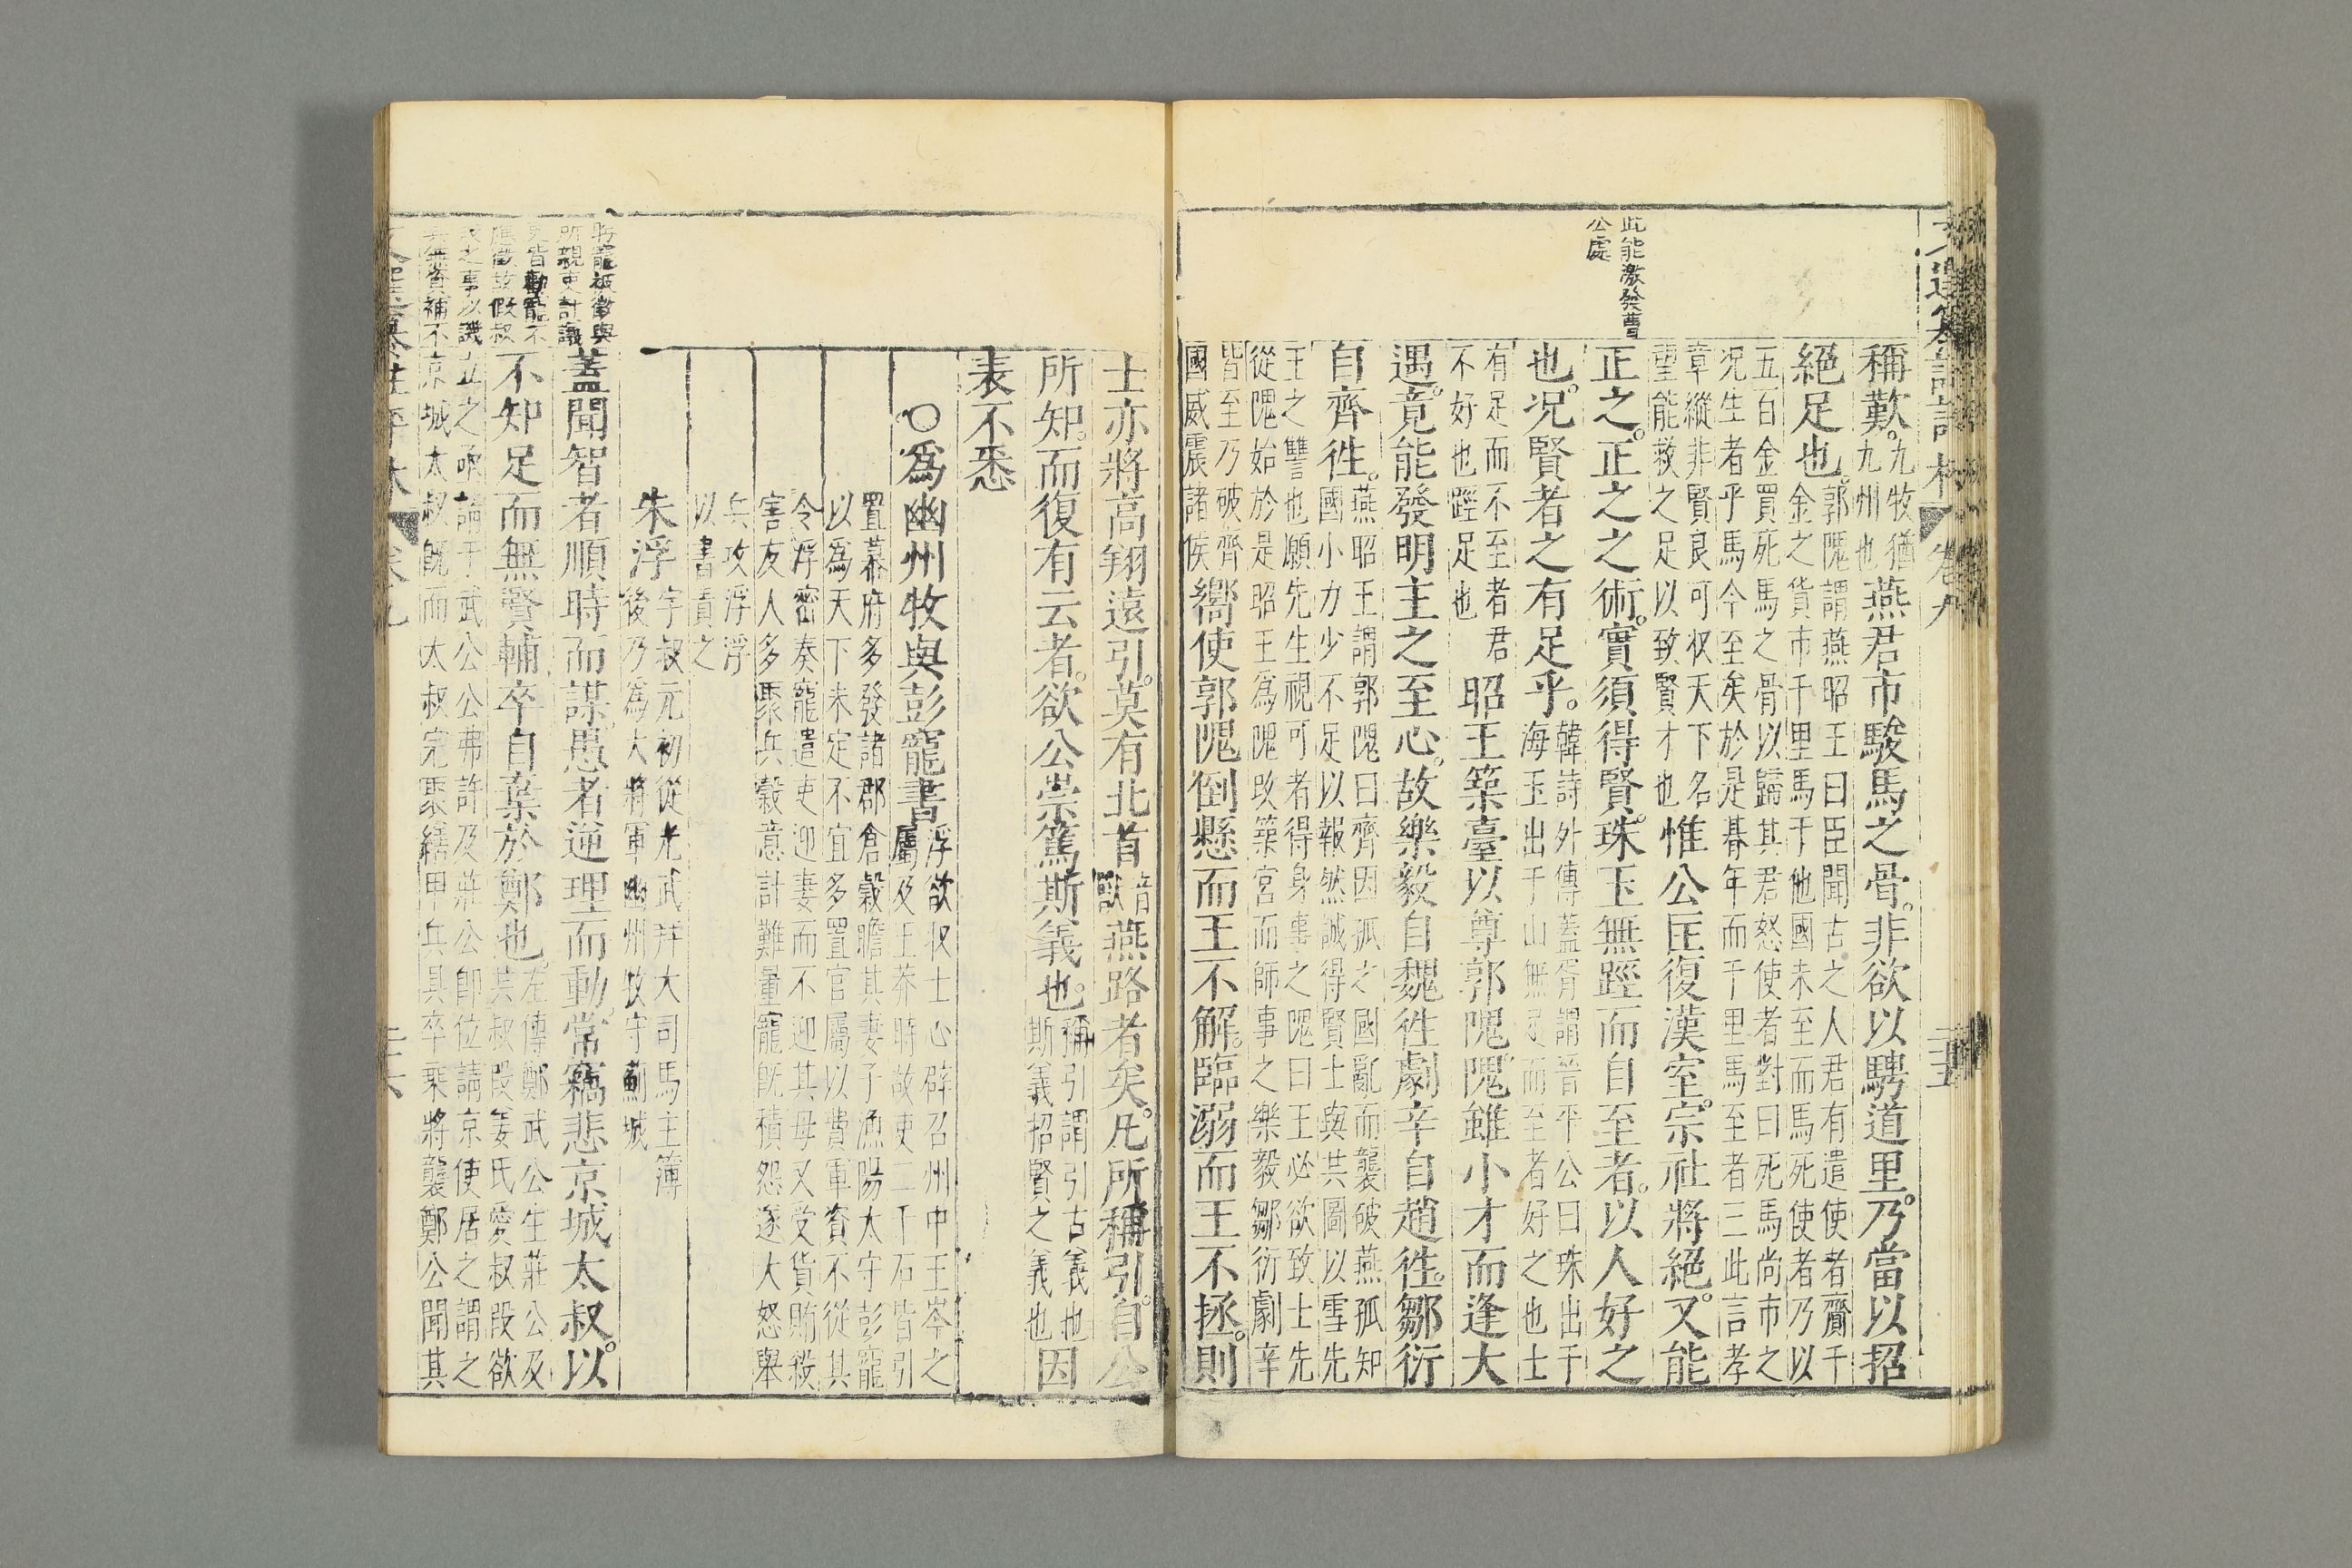 此能激發曹
公處
稱歎九牧猶九州也燕君市駿馬之骨非欲以騁道里乃當以招
絕足也郭隗謂燕昭王曰臣聞古之人君有遣使者齎千金之貨市千里馬于他國未至而馬死使者乃以
五百金買死馬之骨以歸其君怒使者對曰死馬尚市之况生者乎馬今至矣於是朞年而千里馬至者三此言孝
章縱非賢良可収天下名重能救之足以致賢才也惟公匡復漢室宗社將絕又能
正之正之之術實須得賢珠玉無踁而自至者以人好之
也况賢者之有足乎韓詩外傳蓋胥謂晉平公曰珠出于海玉出于山無足而至者好之也士
有足而不至者君不好也踁足也昭王築臺以尊郭隗隗雖小才而逢大
遇竟能發明主之至心故樂毅自魏徃劇辛自趙徃鄒衍
自齊徃燕昭王謂郭隗曰齊因孤之國亂而襲破燕孤知國小力少不足以報然誠得賢士與共圖以雪先
王之讐也願先生視可者得身事之隗曰王必欲致士先從隗始於是昭王為隗改築宮而師事之樂毅鄒衍劇辛
皆至乃破齊國威震諸侯嚮使郭隗倒懸而王不解臨溺而王不拯則
士亦將高翔遠引莫有北首音獸燕路者矣凡所稱引自公
所知而復有云者欲公崇篤斯義也稱引謂引古義也斯義招賢之義也因
表不悉
○為幽州牧與彭寵書浮欲収士心辟召州中王岑之屬及王莽時故吏二千石皆引
置幕府多發諸郡倉穀贍其妻子漁陽太守彭寵以為天下未定不宜多置官屬以費軍資不從其
令浮密奏寵遣吏迎妻而不迎其母又受貨賄殺害友人多聚兵穀意計難量寵旣積怨遂大怒舉
兵攻浮浮以書責之
朱浮字叔元初從光武拜大司馬主簿後乃為大將軍幽州牧守薊城
蓋聞智者順時而謀愚者逆理而動常竊悲京城太叔以
不知足而無賢輔卒自棄於鄭也左傳鄭武公生莊公及共叔段姜氏愛叔段欲
立之亟請于武公公弗許及莊公卽位請京使居之謂之京城太叔旣而太叔完聚繕甲兵具卒乘將襲鄭公聞其